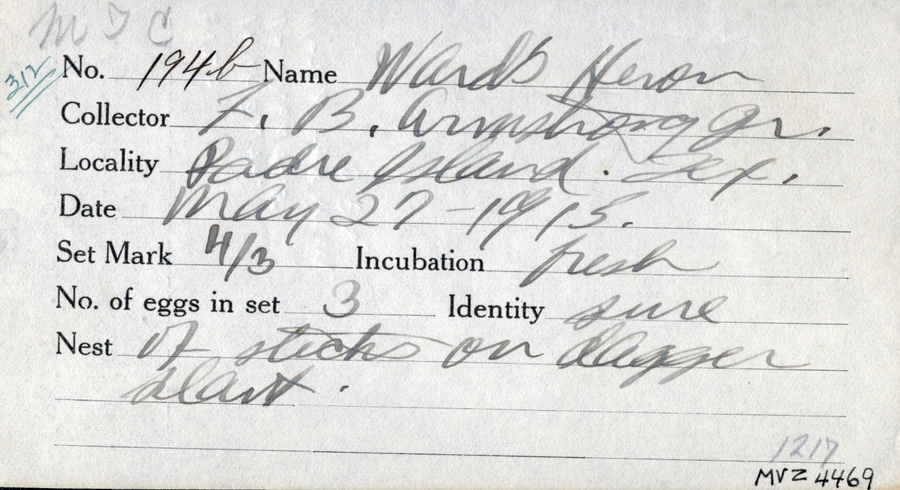 M T C
312
No. 194b Name Ward's Heron
Collector F. B. Armstrong Jr.
Locality Padre Island. Tex.
Date May 27-1915.
Set Mark 4/3 Incubation fresh
No. of eggs in set 3 Identity sure
Nest of sticks on dagger
plant.
1217
MVZ 4469